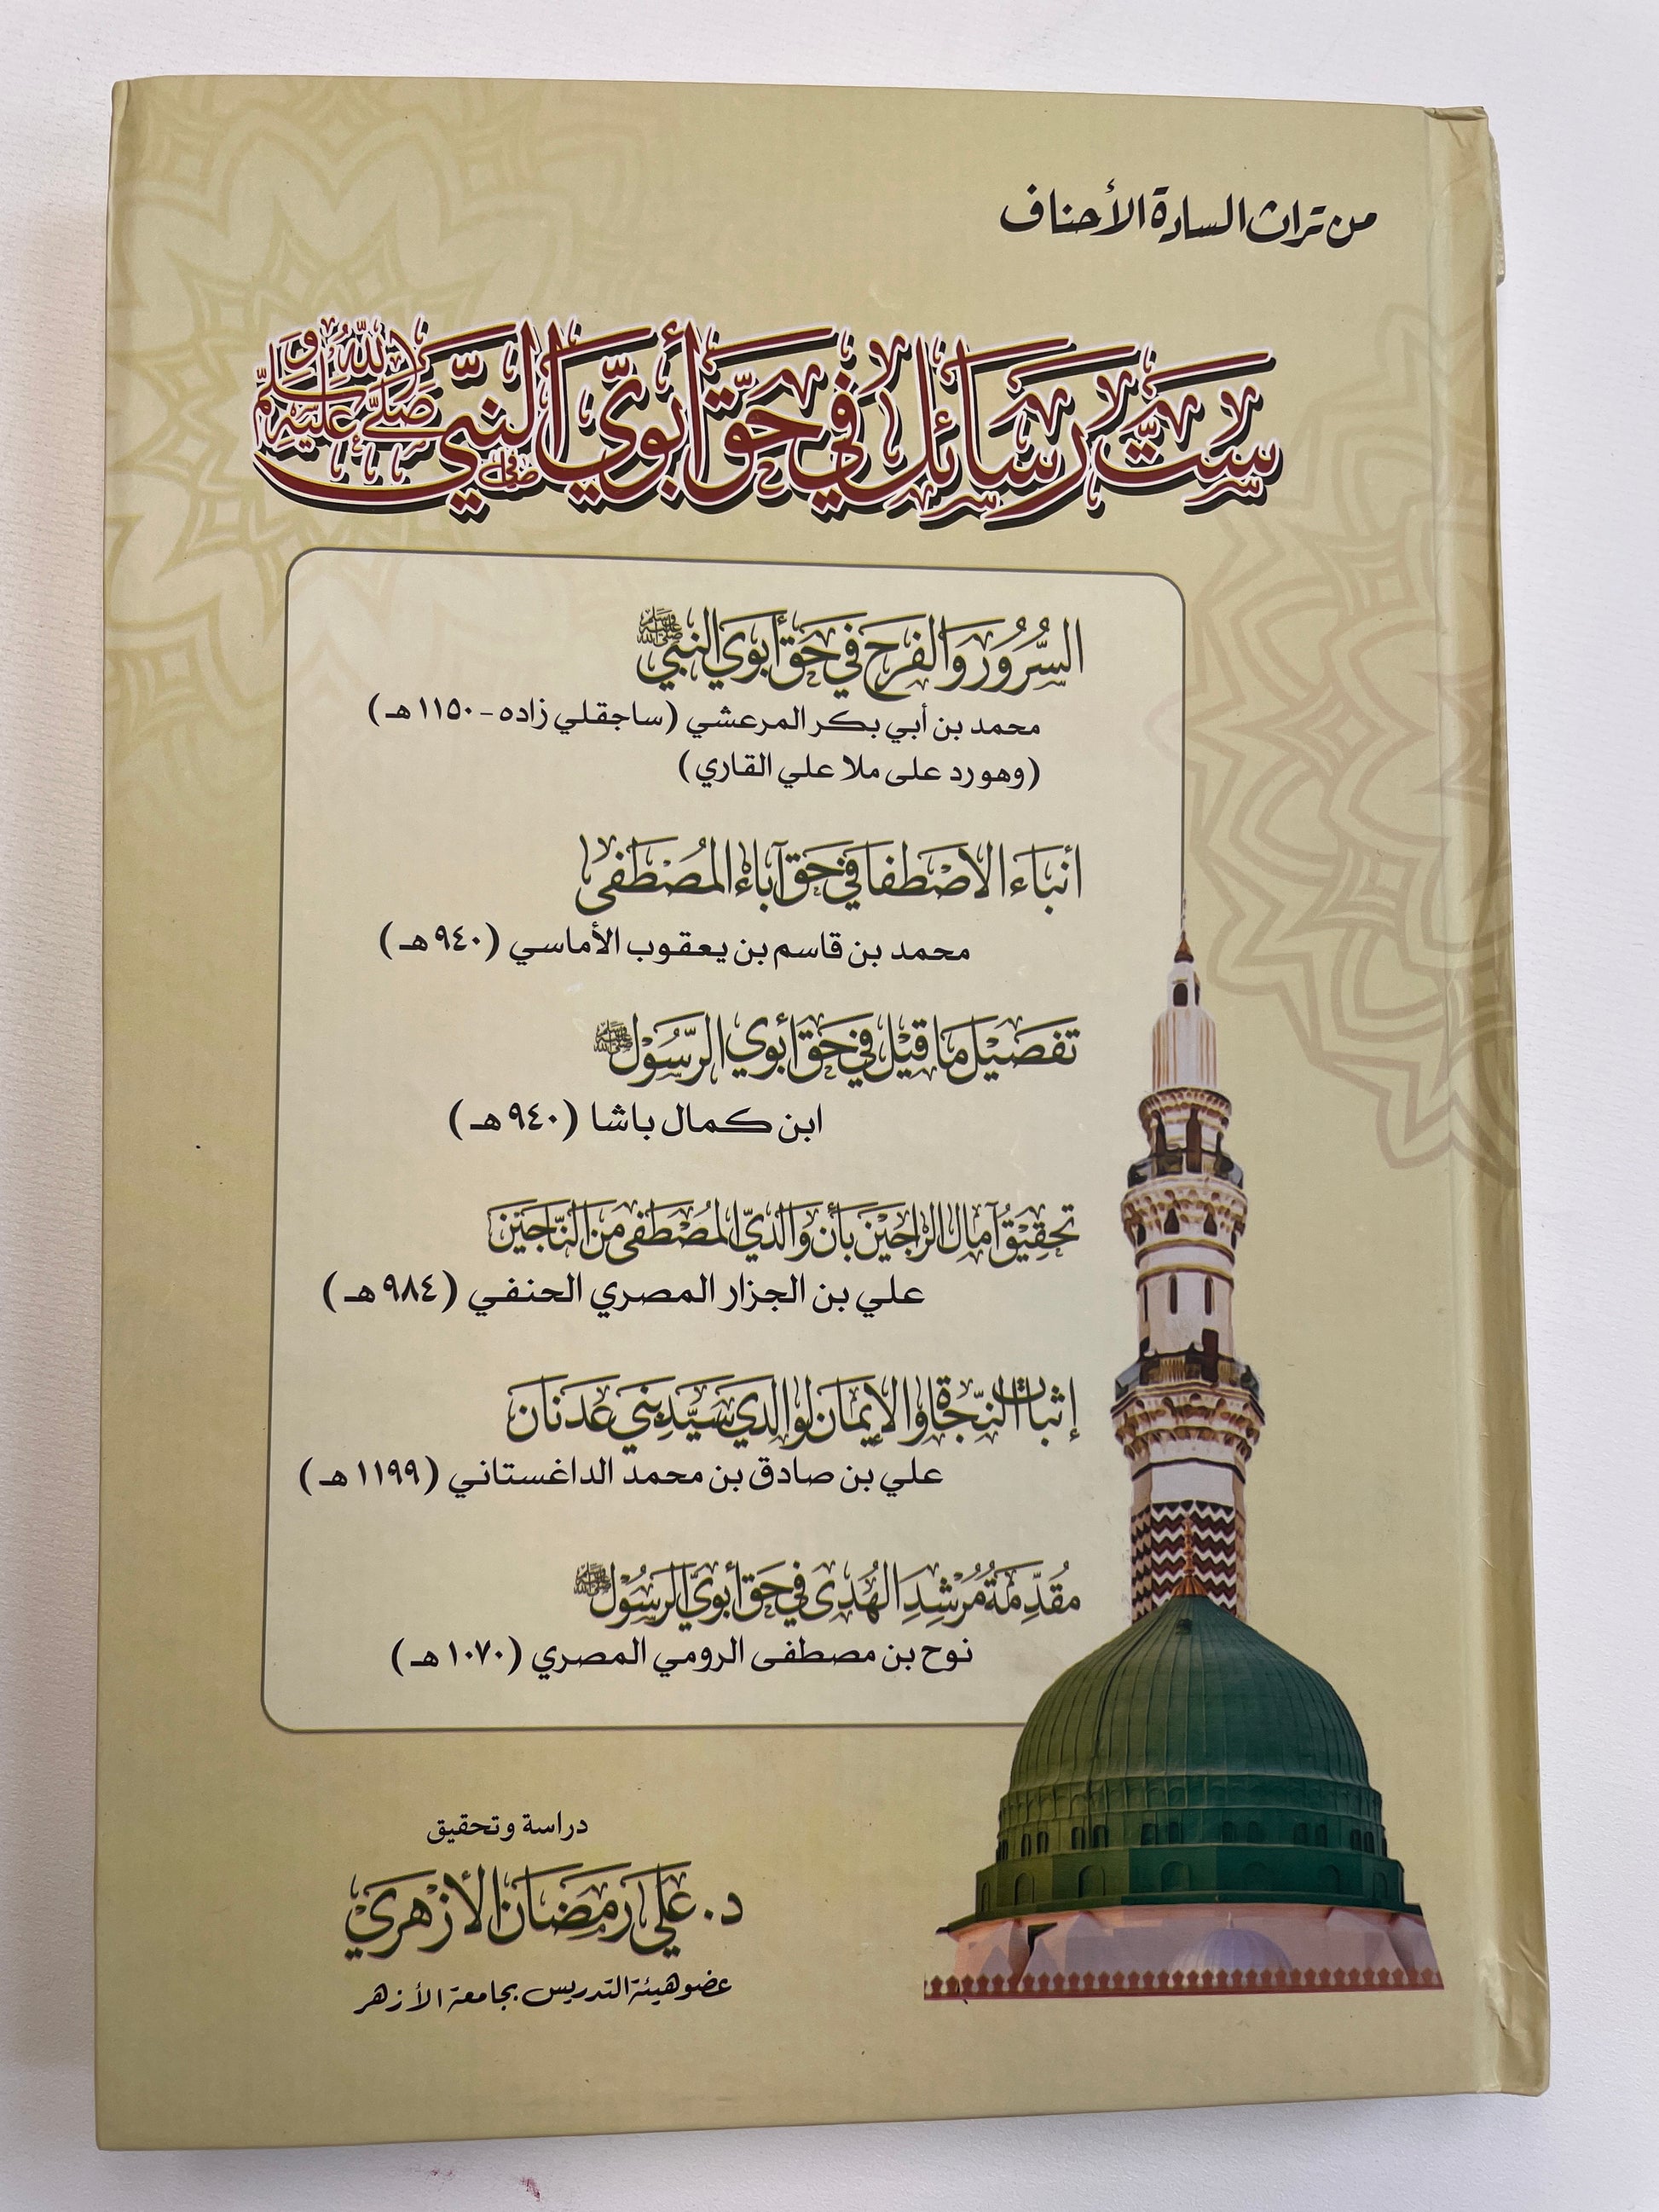 من تراث السادة الأحناف
ستّ رسائل في حقّ أبويّ النبيّ صلى الله عليه وسلم
السُّرُور والفرح في حق أبوي النبي ﷺ
محمد بن أبي بكر المرعشي (ساجقلي زاده - ١١٥٠هـ)
(وهو رد على ملا علي القاري)
أنباء الاصطفا في حق آباء المُصْطَفى
محمد بن قاسم بن يعقوب الأماسي (٩٤٠هـ)
تفصيل ما قيل في حق أبوي الرَّسُول ﷺ
ابن كمال باشا (٩٤٠هـ)
تحقيق آمال الراجين بأن والديّ المُصْطَفى من النّاجين
علي بن الجزار المصري الحنفي (٩٨٤هـ)
إثبات النّجاة والإيمان لوالدي سيّد بني عدنان
علي بن صادق بن محمد الداغستاني (١١٩٩هـ)
مُقدّمة مُرْشِد الهُدى في حق أبويّ الرسُول ﷺ
نوح بن مصطفى الرومي المصري (١٠٧٠هـ)
دراسة وتحقيق
د. علي رمضان الأزهري
عضو هيئة التدريس بجامعة الأزهر